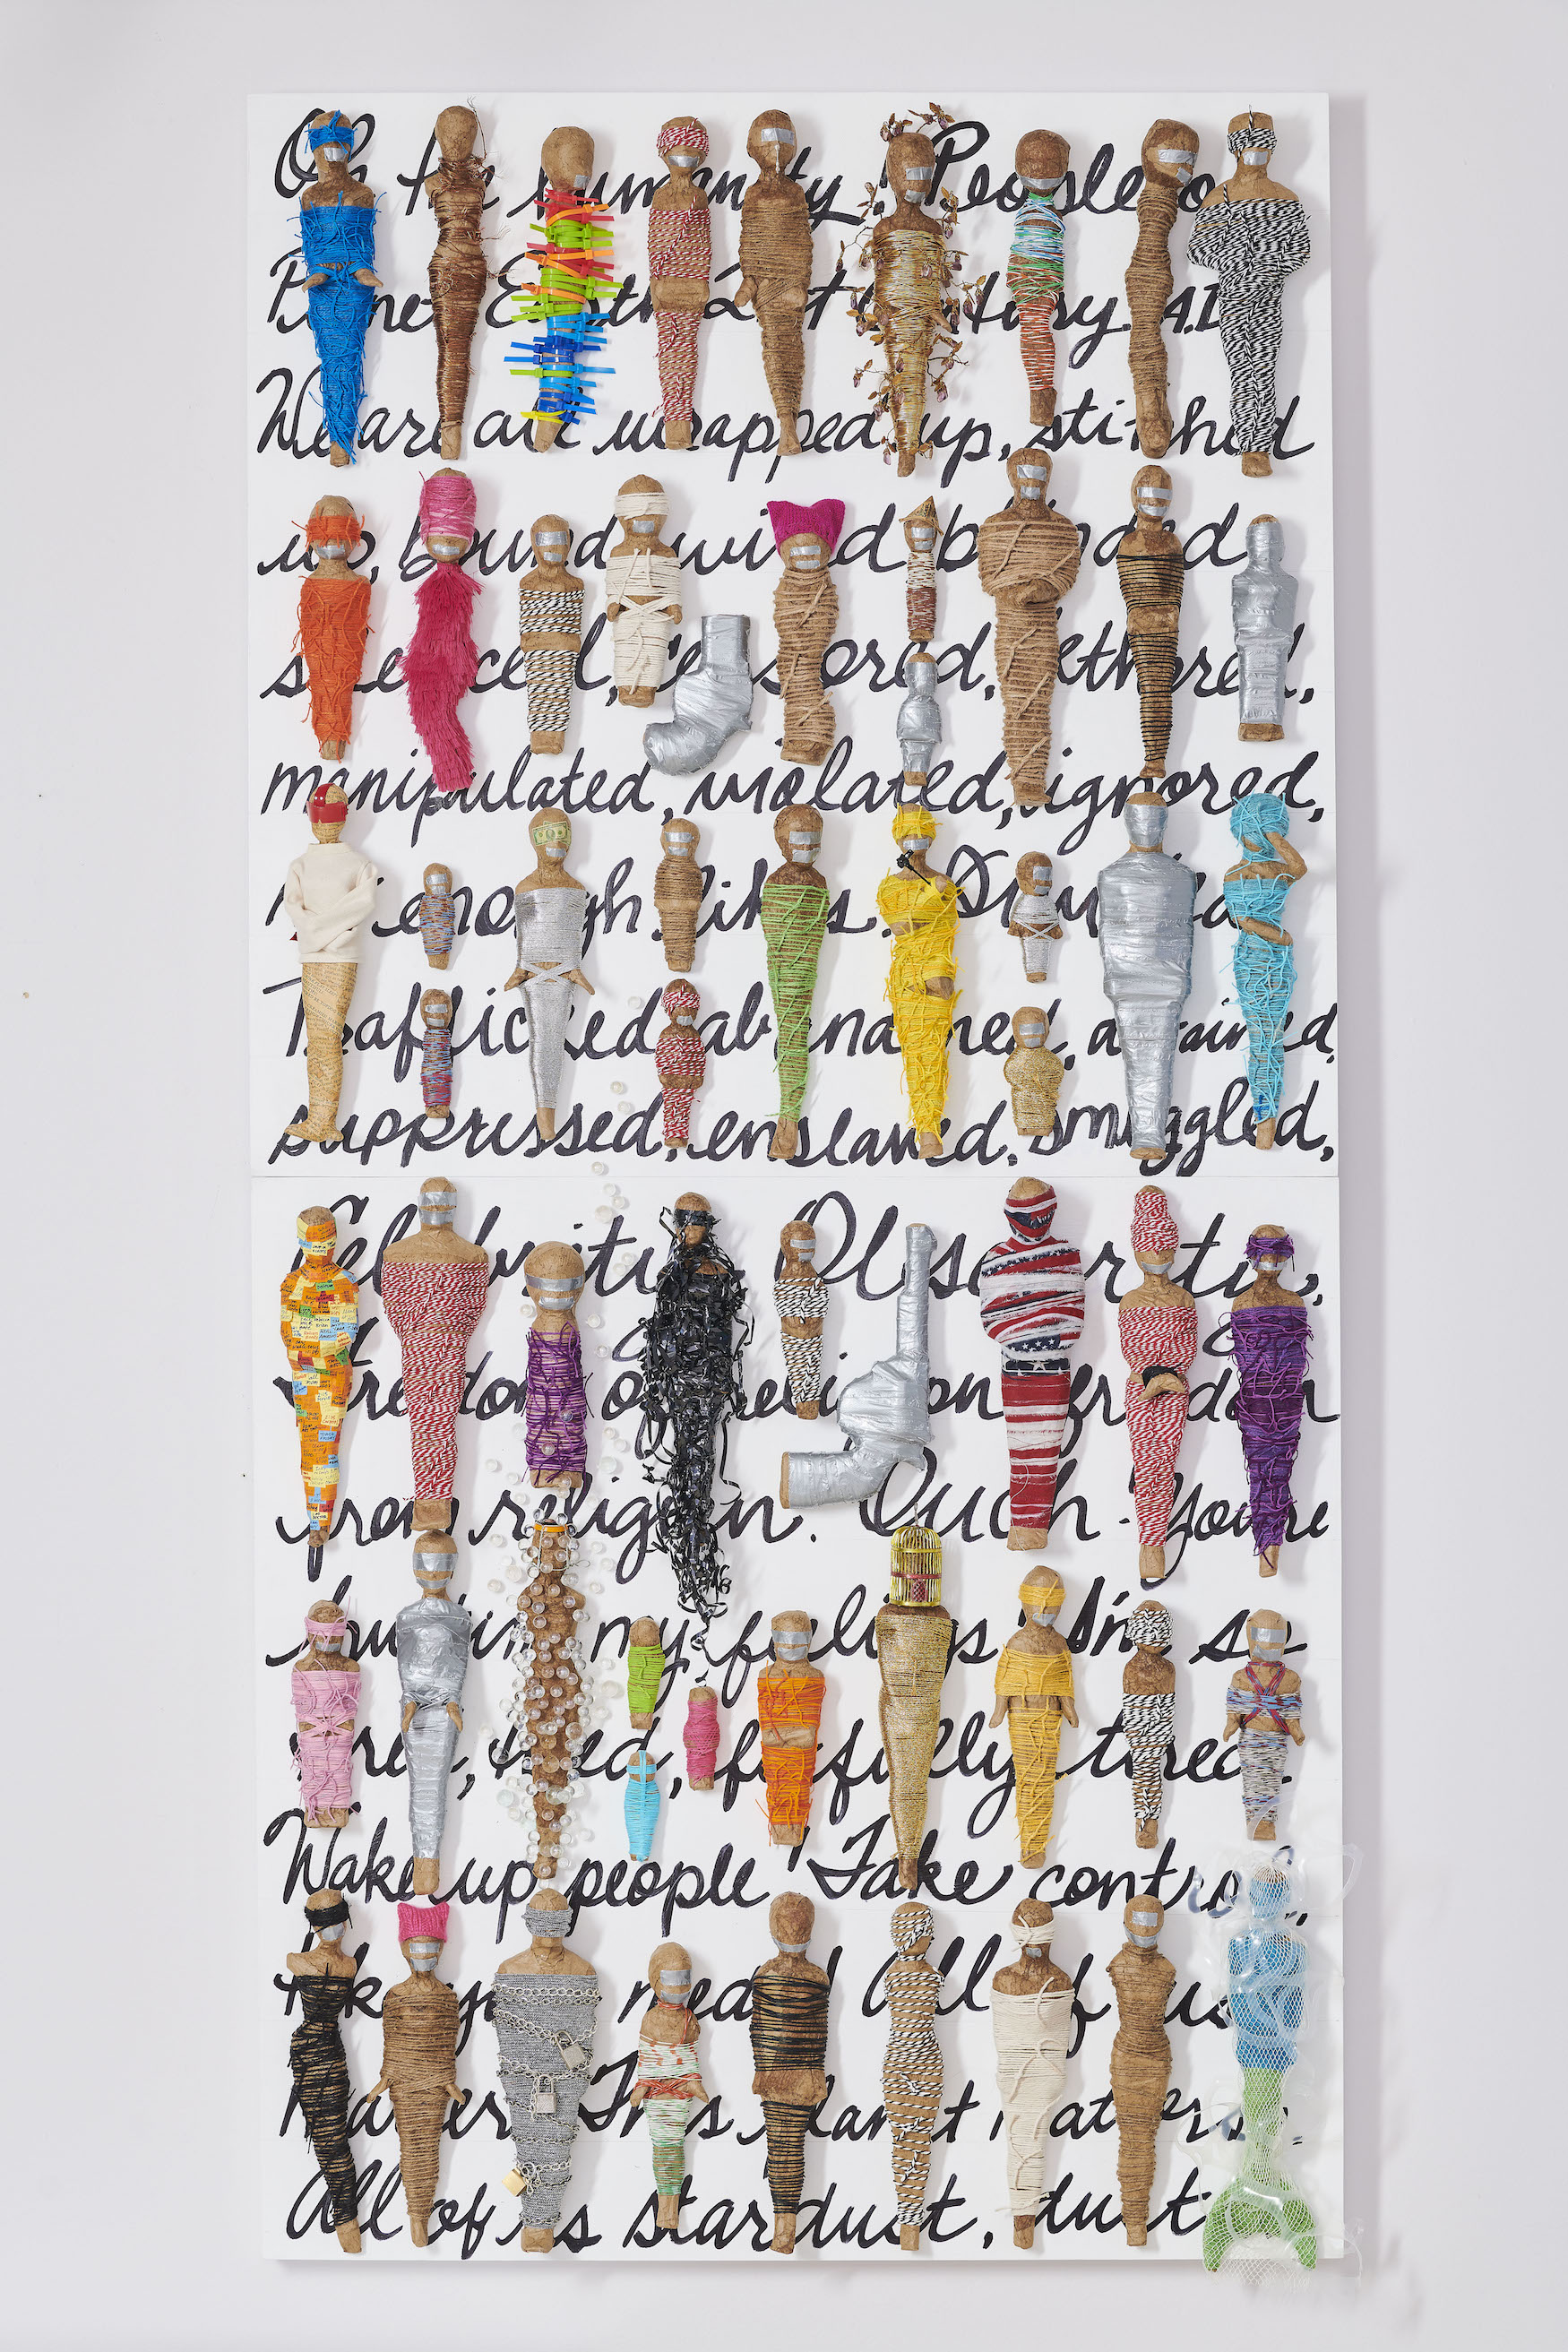 Oh the humanity! People of
Planet Earth 21st Century A.D.
We are all wrapped up, stitched
up, bound, wired, blinded
silenced, censored, tethered,
manipulated, violated, ignored,
enough likes.
Trafficked, abandoned,
suppressed, enslaved, smuggled,
Celebrities
freedom of religion, freedom
from religion. Ouch. You're
hurting my feelings. I'm so
tired, tired, fitfully tired.
Wake up people! Take control,
All of us
matter. This planet matters.
All of us stardust, dust